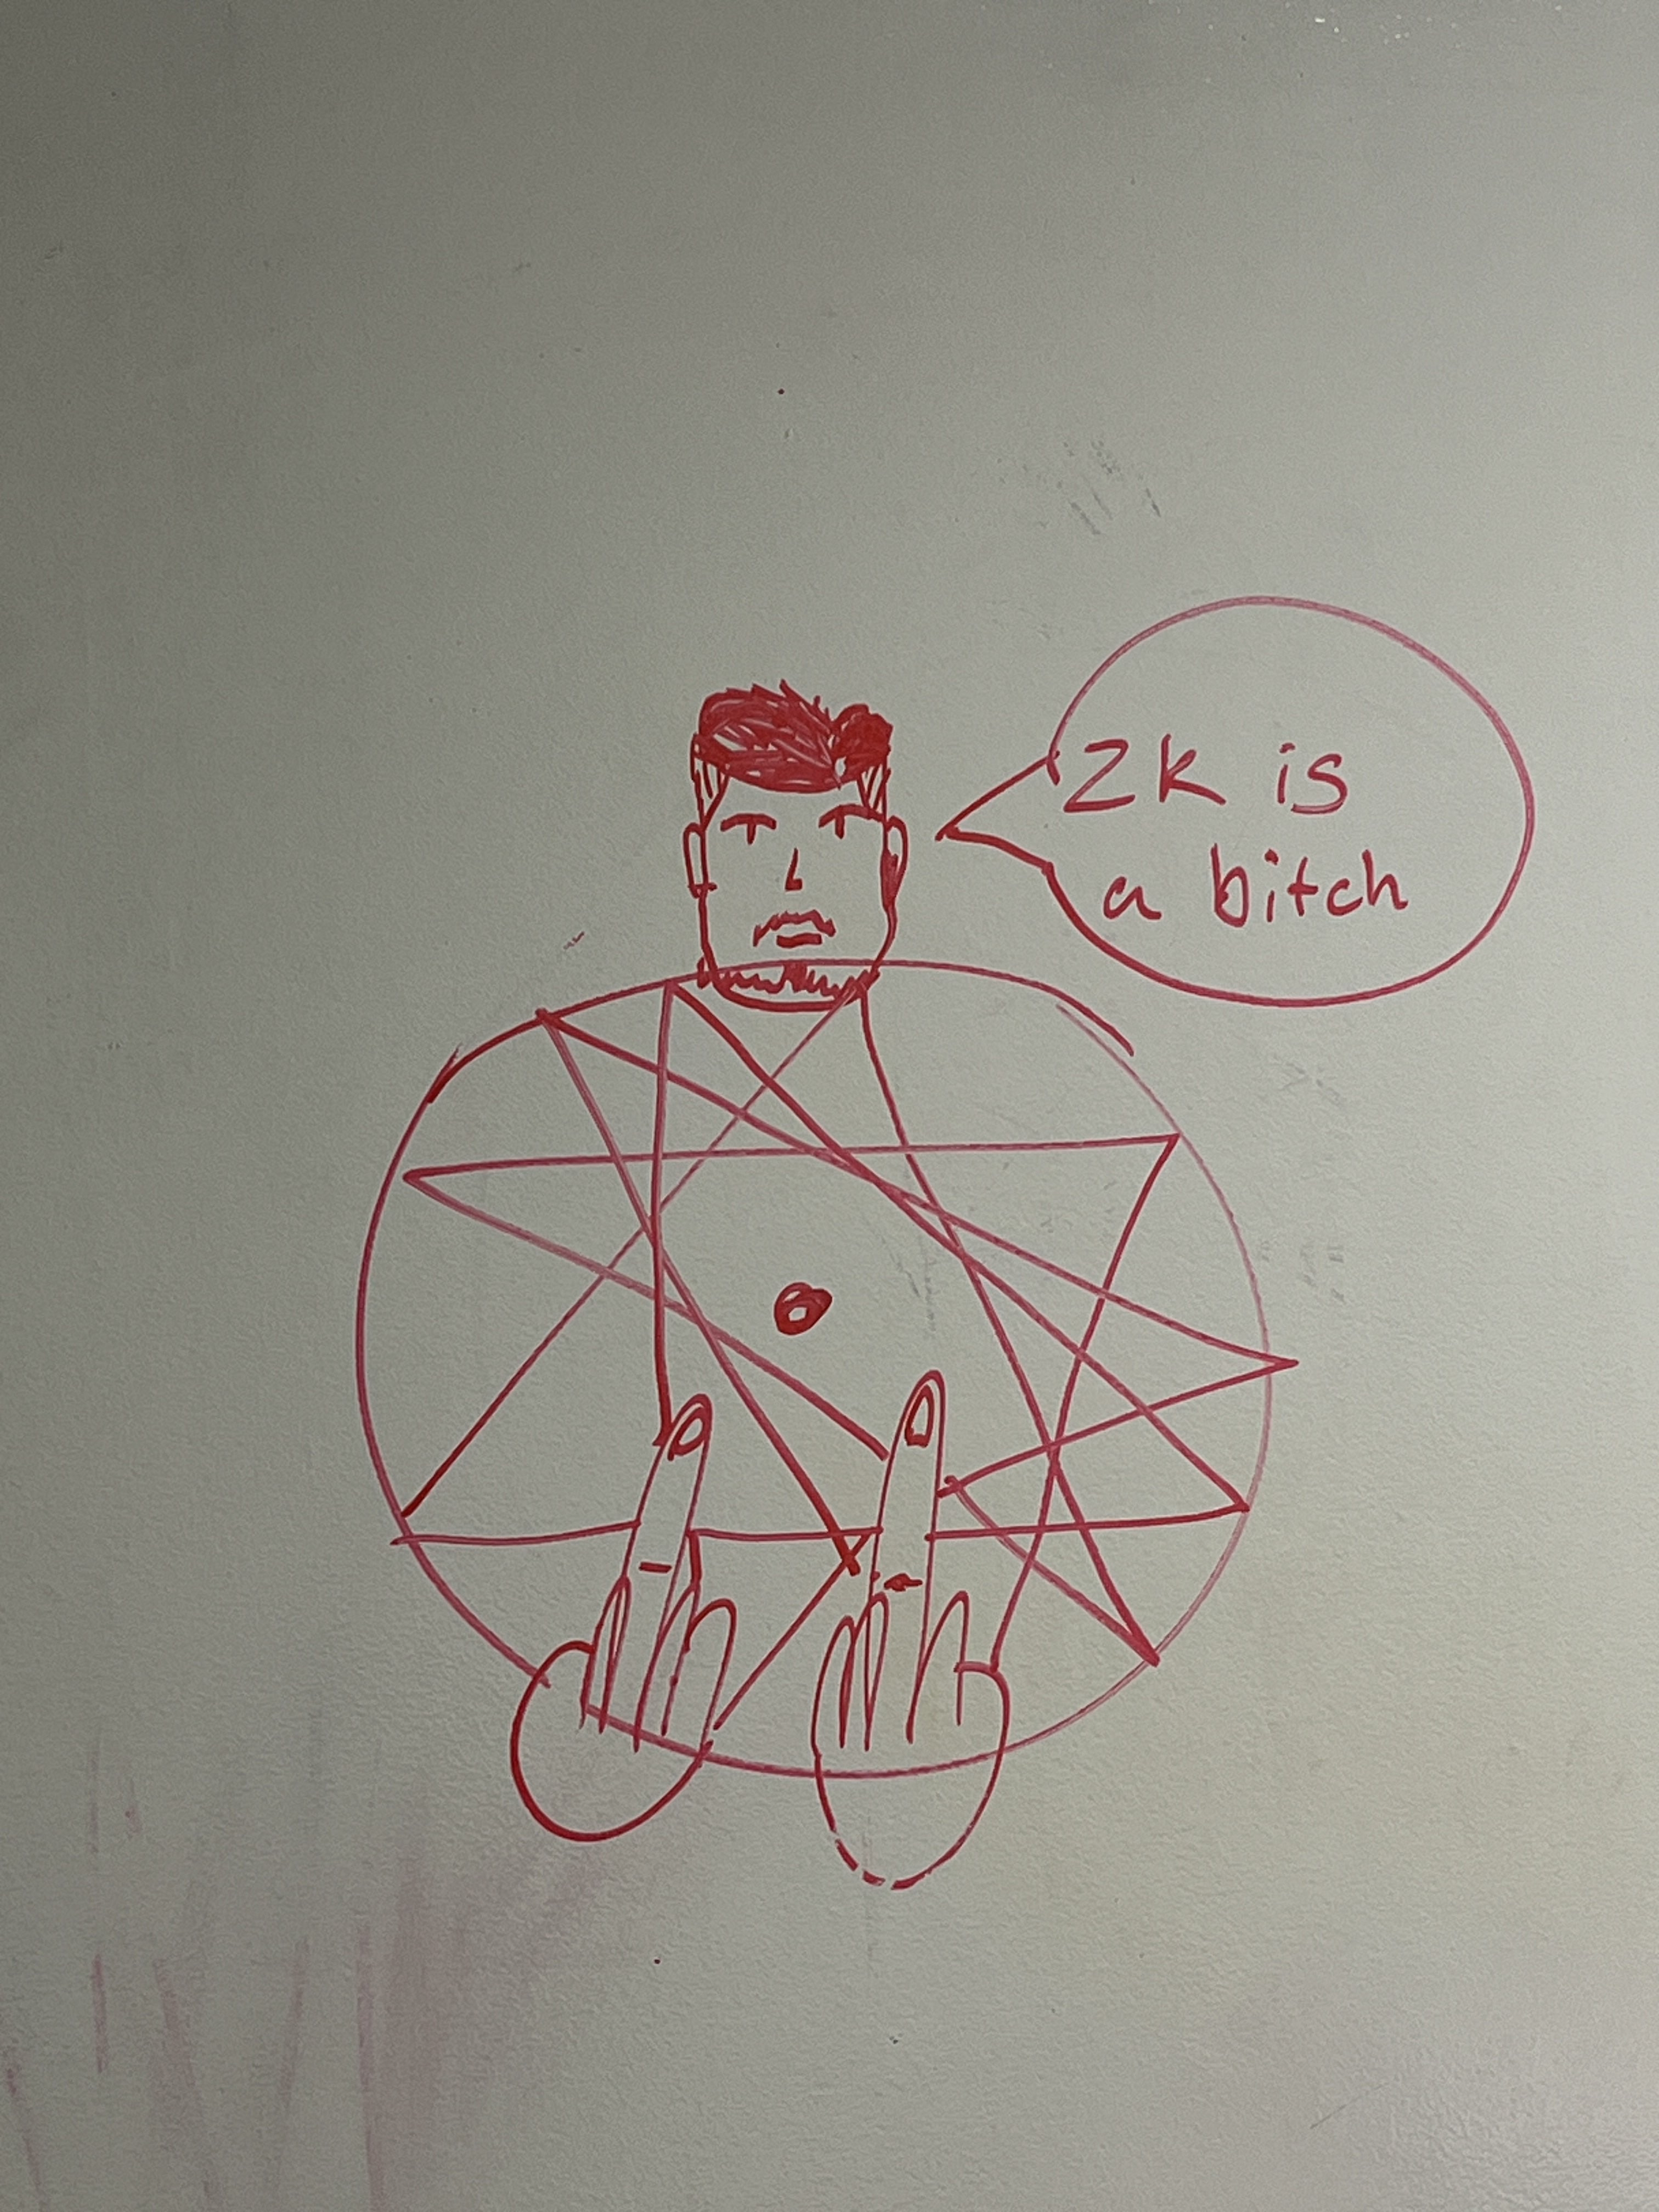 ZK is
a bitch